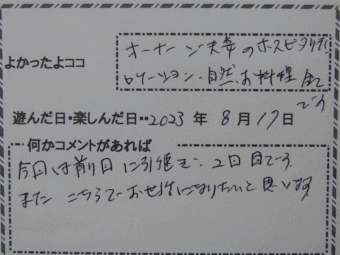 よかったよココ
オーナー夫妻のホスピタリティ
ロケーション、自然、お料理 全て
です
遊んだ日・楽しんだ日・・2023 年 8 月 17 日
何かコメントがあれば
今回は前回に引継ぎ、2回目です
また こちらでお世話になりたいと思います